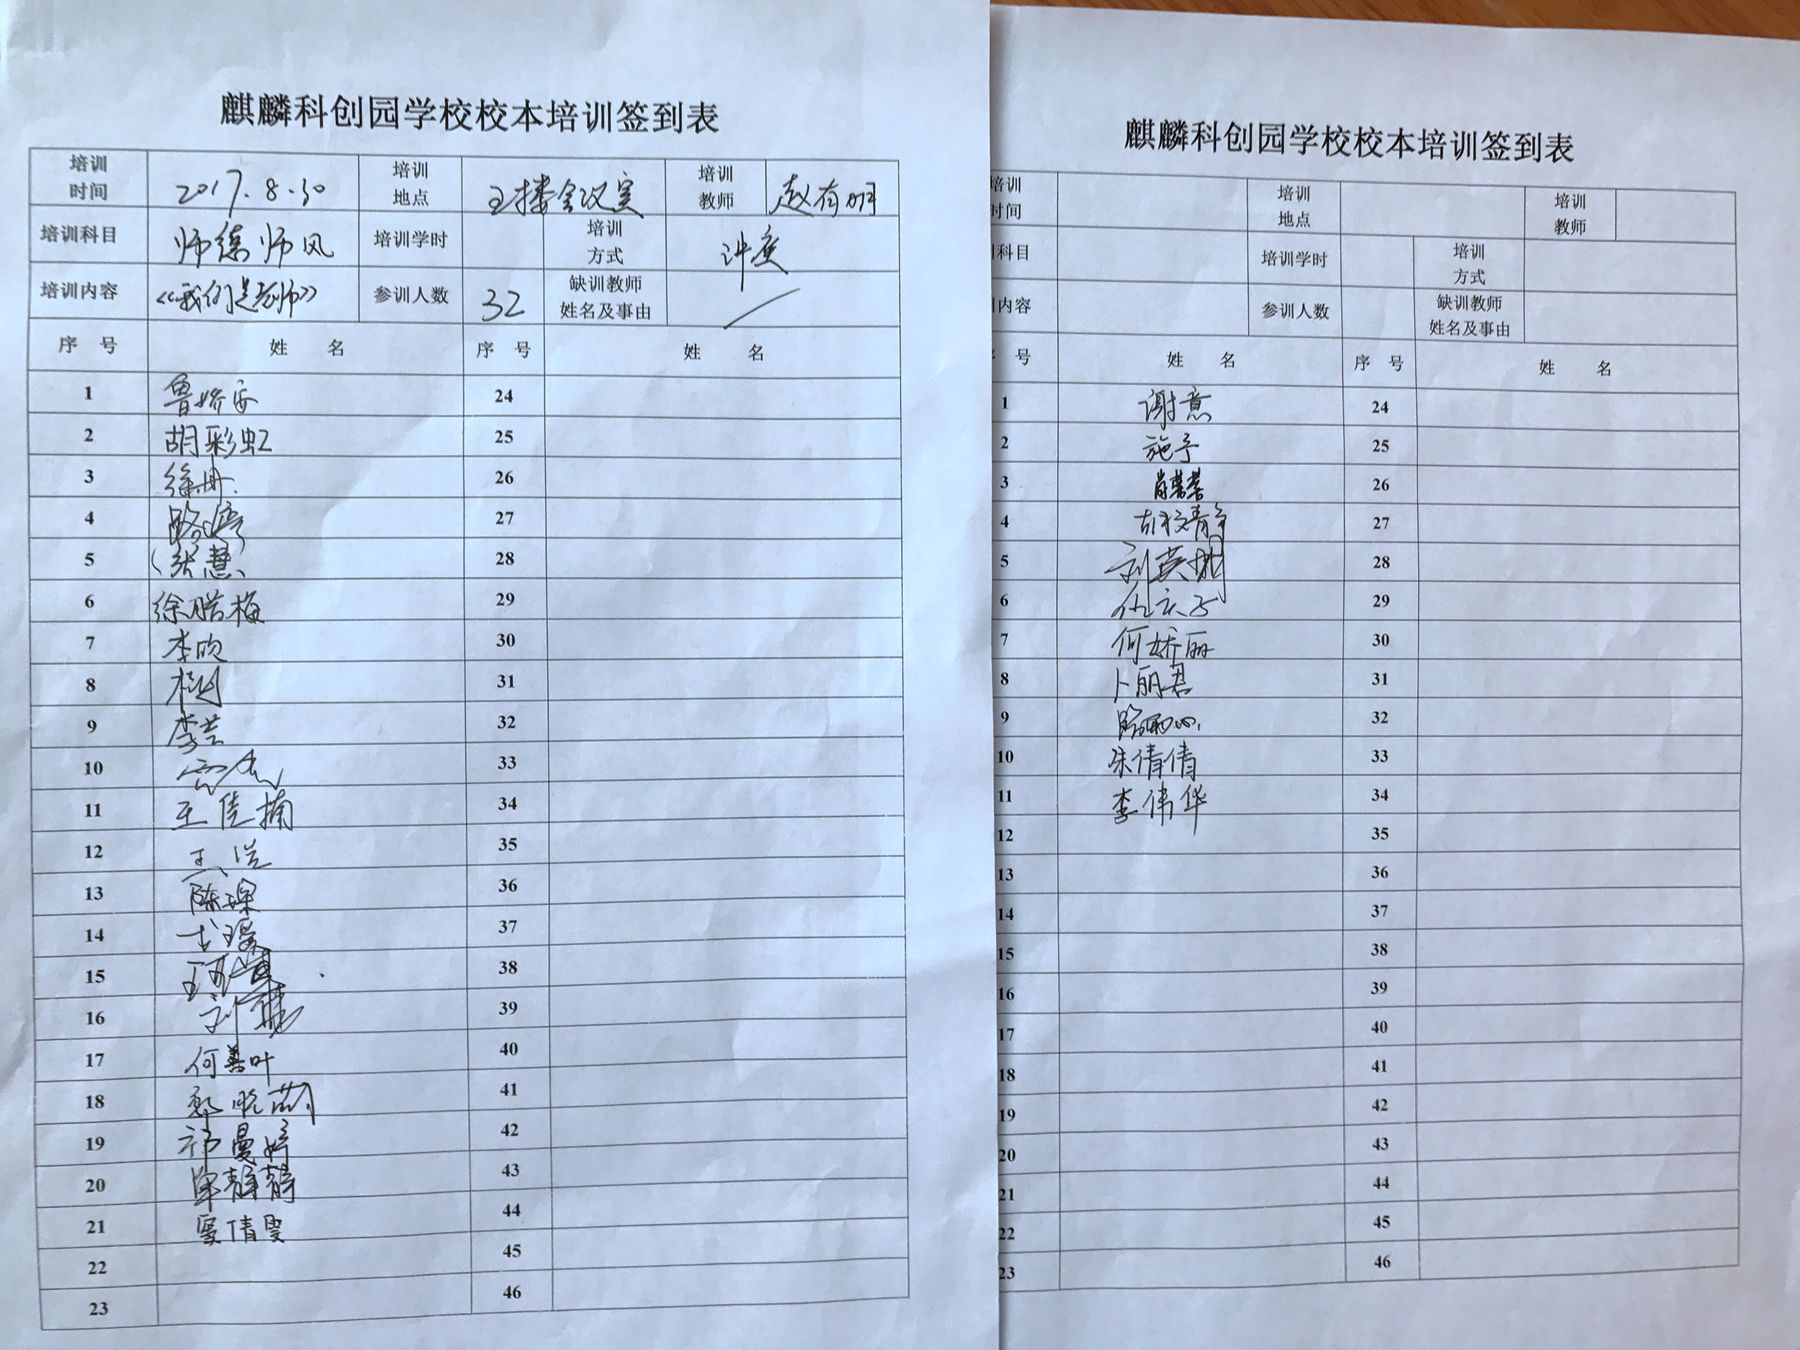 麒麟科创园学校校本培训签到表
培训时间 2017.8.30 培训地点 主楼会议室 培训教师 赵有明
培训科目 师德师风 培训学时 培训方式 讲座
培训内容 《我们是老师》 参训人数 32 缺训教师姓名及事由
序 号 姓 名 序 号 姓 名
1 24
2 胡彩虹 25
3 徐丹 26
4 27
5 张慧 28
6 徐腊梅 29
7 李欣 30
8 31
9 李芸 32
10 33
11 王佳楠 34
12 35
13 陈琛 36
14 37
15 38
16 39
17 何善叶 40
18 41
19 祁曼婷 42
20 陈静静 43
21 倩雯 44
22 45
23 46
麒麟科创园学校校本培训签到表
培训时间 培训地点 培训教师
科目 培训学时 培训方式
内容 参训人数 缺训教师姓名及事由
号 姓 名 序 号 姓 名
1 谢意 24
2 施予 25
3 26
4 胡文静 27
5 28
6 29
7 何娇丽 30
8 卜丽君 31
9 32
10 朱倩倩 33
11 李伟华 34
12 35
13 36
14 37
15 38
16 39
17 40
18 41
19 42
20 43
21 44
22 45
23 46